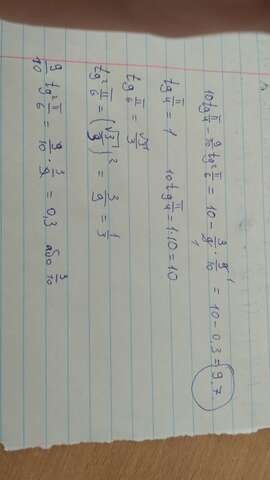 10tg π/4 - 9/10 tg² π/6 = 10 - 3/9 · 9/10 = 10 - 0,3 = 9,7
tg π/4 = 1 10tg π/4 = 1·10 = 10
tg π/6 = √3/3
tg² π/6 = (√3/3)² = 3/9 = 1/3
9/10 tg² π/6 = 9/10 · 3/9 = 0,3 або 3/10